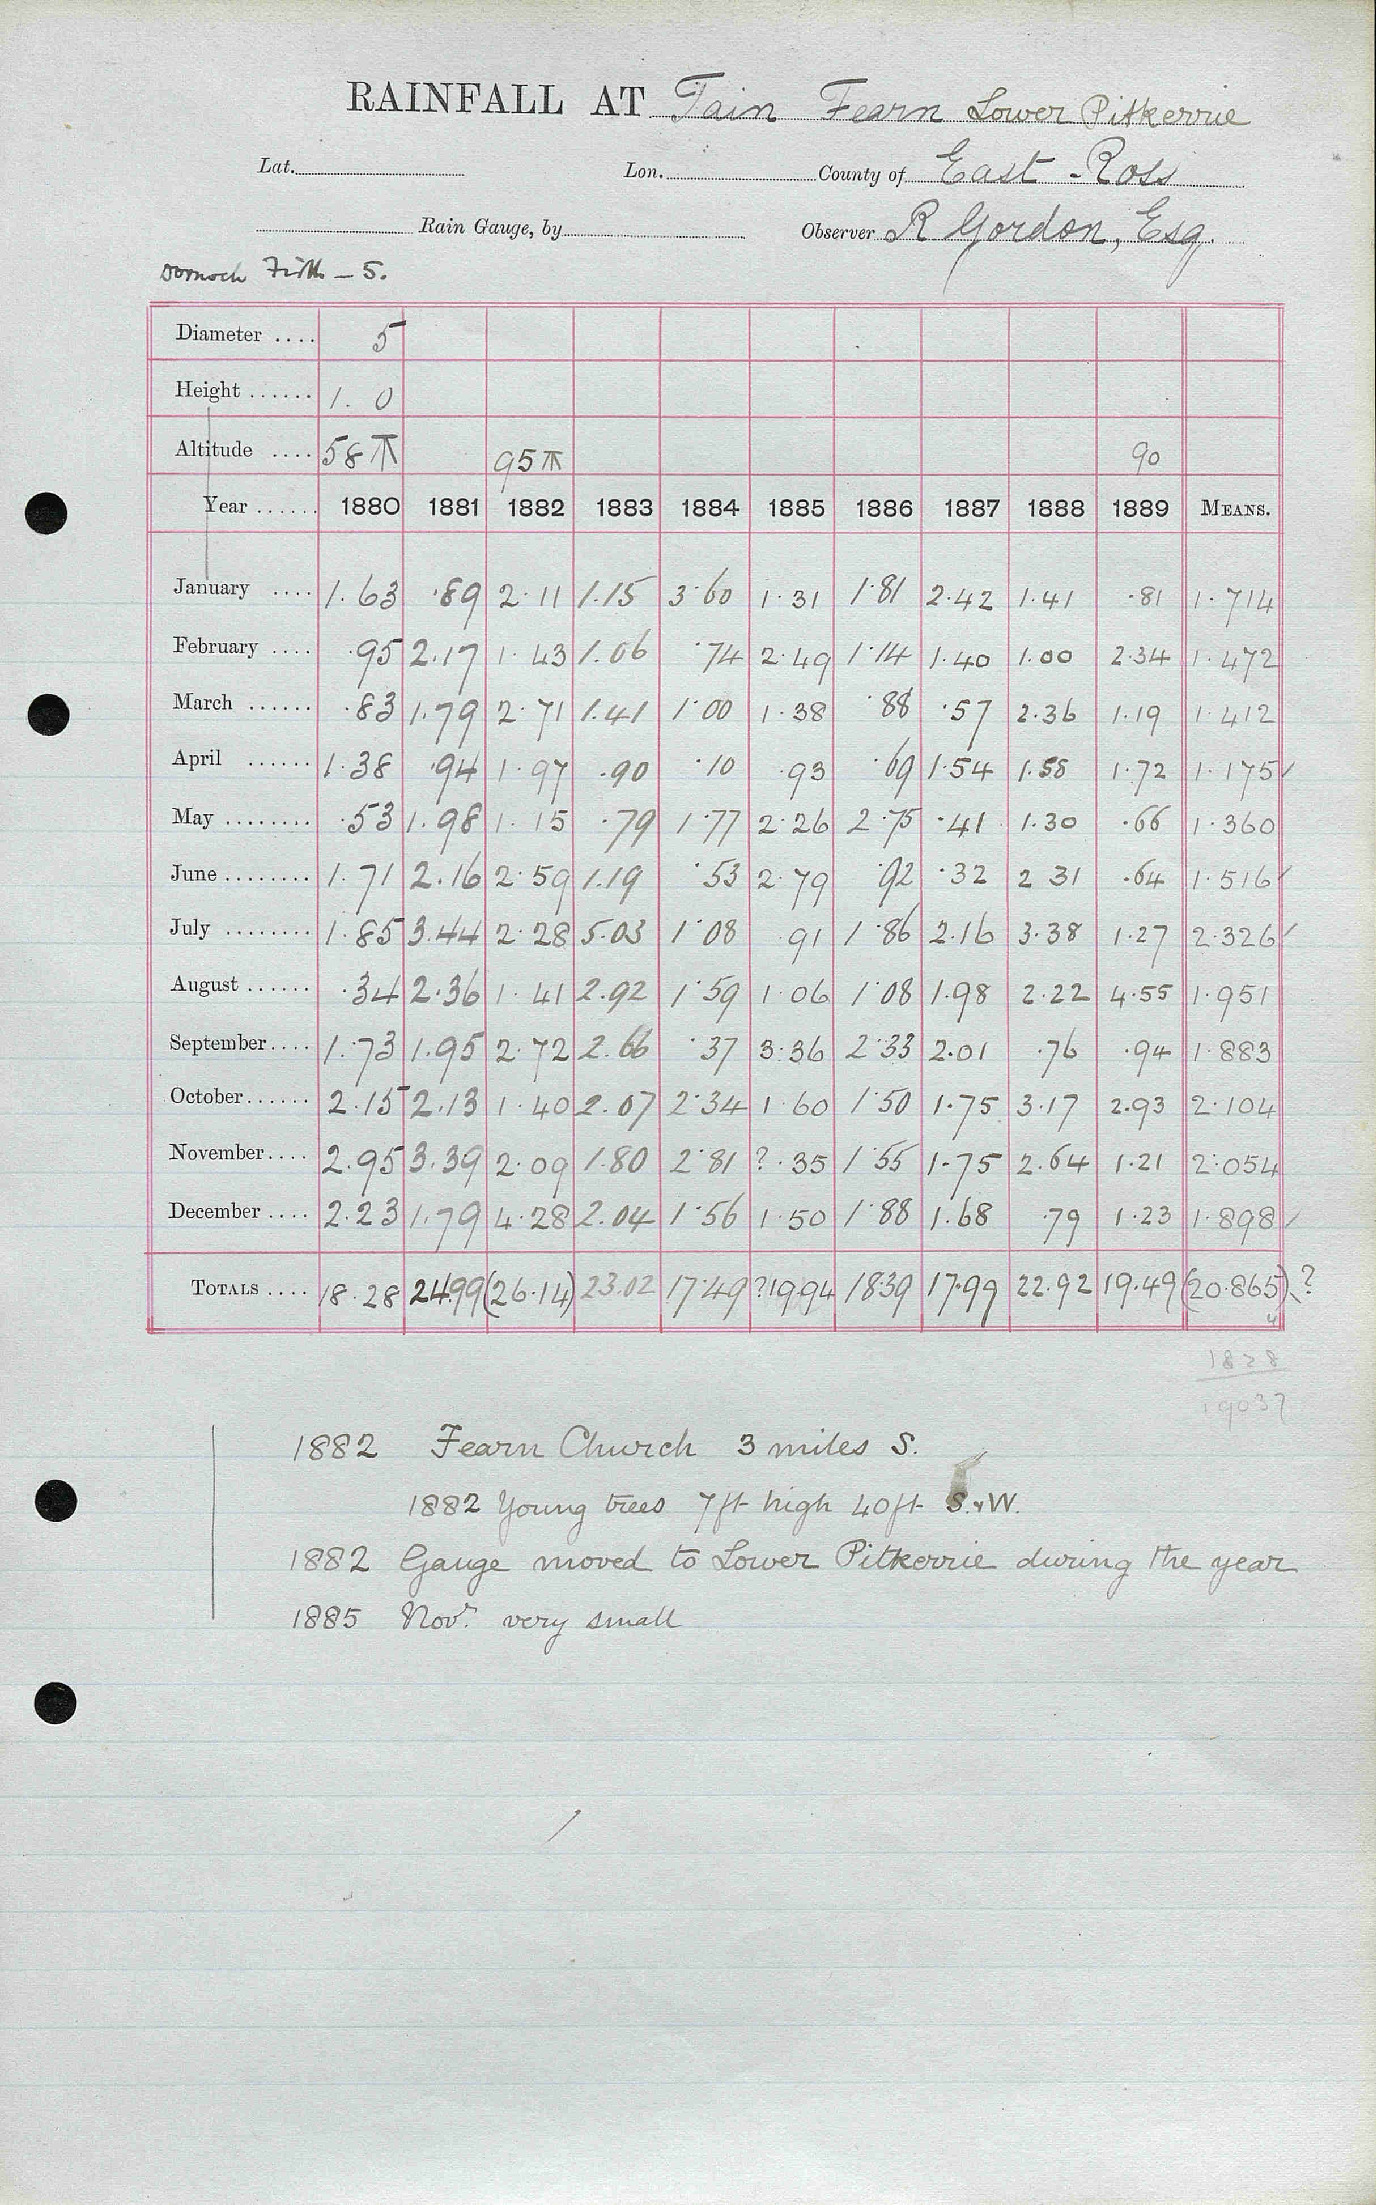 RAINFALL AT Tain Fearn Lower Pitkerrie
Lat. Lon. County of East-Ross
Rain Gauge, by Observer R Gordon, Esq.
Dornoch Firth - 5.
Diameter .... 5
Height ...... 1. 0
Altitude .... 58 95 90
Year ...... 1880 1881 1882 1883 1884 1885 1886 1887 1888 1889 MEANS.
January .... 1.63 .89 2.11 1.15 3.60 1.31 1.81 2.42 1.41 .81 1.714
February .... .95 2.17 1.43 1.06 .74 2.49 1.14 1.40 1.00 2.34 1.472
March ...... .83 1.79 2.71 1.41 1.00 1.38 .88 .57 2.36 1.19 1.412
April ...... 1.38 .94 1.97 .90 .10 .93 .69 1.54 1.58 1.72 1.175✓
May ........ .53 1.98 1.15 .79 1.77 2.26 2.75 .41 1.30 .66 1.360
June ........ 1.71 2.16 2.59 1.19 .53 2.79 .92 .32 2 31 .64 1.516✓
July ........ 1.85 3.44 2.28 5.03 1.08 .91 1.86 2.16 3.38 1.27 2.326✓
August ...... .34 2.36 1.41 2.92 1.59 1.06 1.08 1.98 2.22 4.55 1.951
September.... 1.73 1.95 2.72 2.66 .37 3.36 2.33 2.01 .76 .94 1.883
October...... 2.15 2.13 1.40 2.07 2.34 1.60 1.50 1.75 3.17 2.93 2.104
November.... 2.95 3.39 2.09 1.80 2.81 ?.35 1.55 1.75 2.64 1.21 2.054
December .... 2.23 1.79 4.28 2.04 1.56 1.50 1.88 1.68 .79 1.23 1.898✓
TOTALS .... 18.28 24.99 (26.14) 23.02 17.49 ?19.94 18.39 17.99 22.92 19.49 (20.865)?
4
1828
19037
1882 Fearn Church 3 miles S.
1882 Young trees 7ft high 40ft S.&W.
1882 Gauge moved to Lower Pitkerrie during the year
1885 Novr. very small